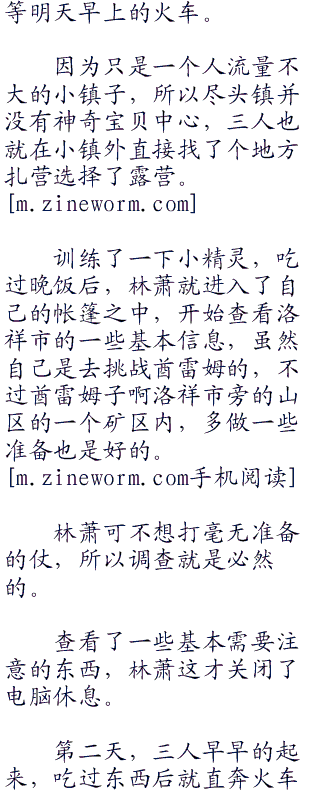 等明天早上的火车。
因为只是一个人流量不
大的小镇子，所以尽头镇并
没有神奇宝贝中心，三人也
就在小镇外直接找了个地方
扎营选择了露营。
[m.zineworm.com]
训练了一下小精灵，吃
过晚饭后，林萧就进入了自
己的帐篷之中，开始查看洛
祥市的一些基本信息，虽然
自己是去挑战酋雷姆的，不
过酋雷姆子啊洛祥市旁的山
区的一个矿区内，多做一些
准备也是好的。
[m.zineworm.com手机阅读]
林萧可不想打毫无准备
的仗，所以调查就是必然
的。
查看了一些基本需要注
意的东西，林萧这才关闭了
电脑休息。
第二天，三人早早的起
来，吃过东西后就直奔火车